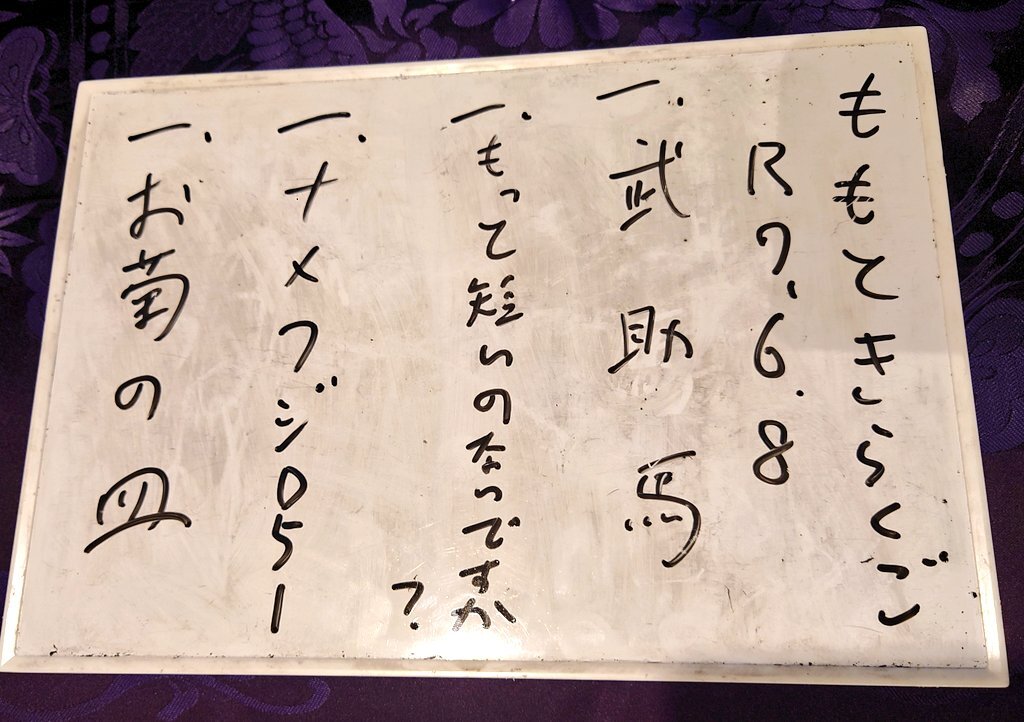 ももときらくご
R7.6.8
一.武助馬
一.もって短いのならですか?
一.ナメフジ0551
一.お菊の皿